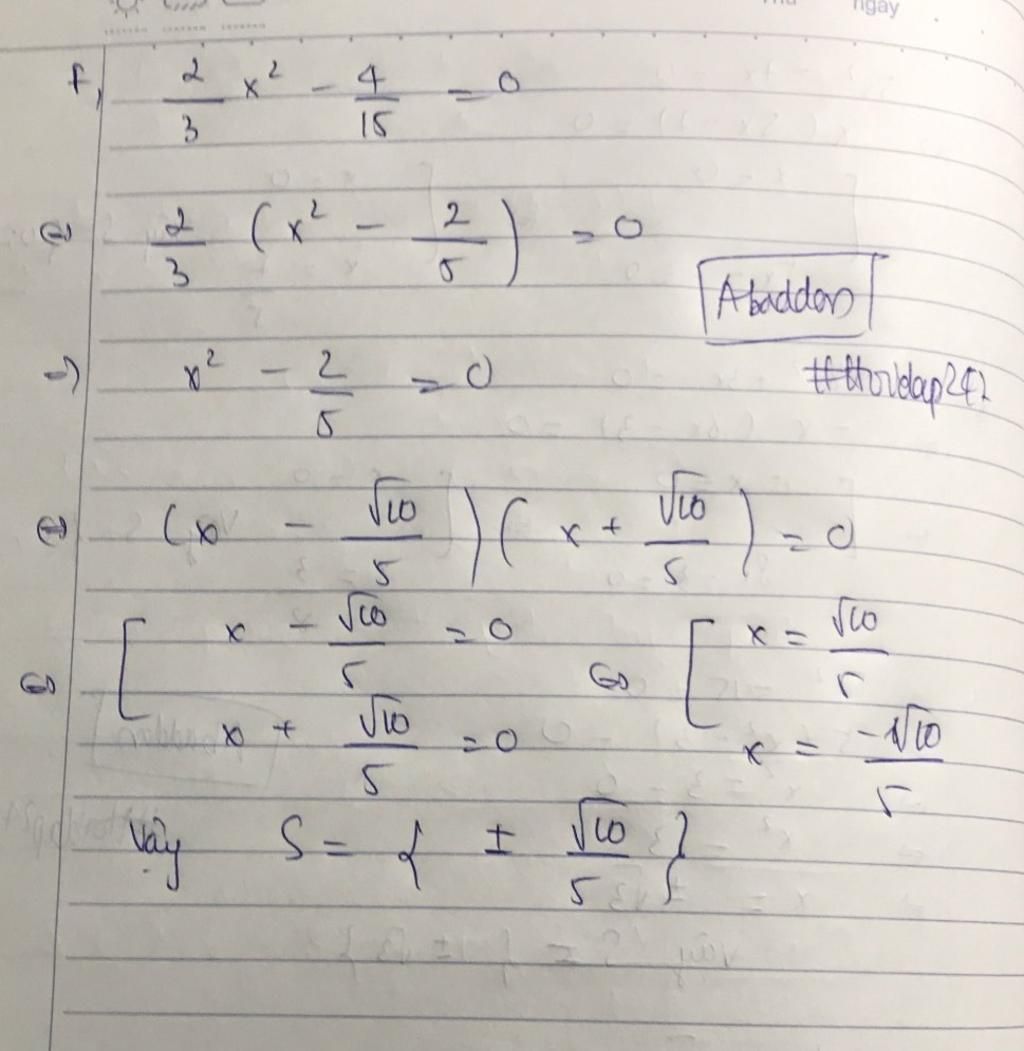 ngày
f, 2/3 x² - 4/15 = 0
⇔ 2/3 (x² - 2/5) = 0
Abaddon
⇒ x² - 2/5 = 0
⇔ (x - √10/5)(x + √10/5) = 0
⇔ [ x - √10/5 = 0 ⇔ [ x = √10/5
x + √10/5 = 0 x = -√10/5
Vậy S = { ± √10/5 }